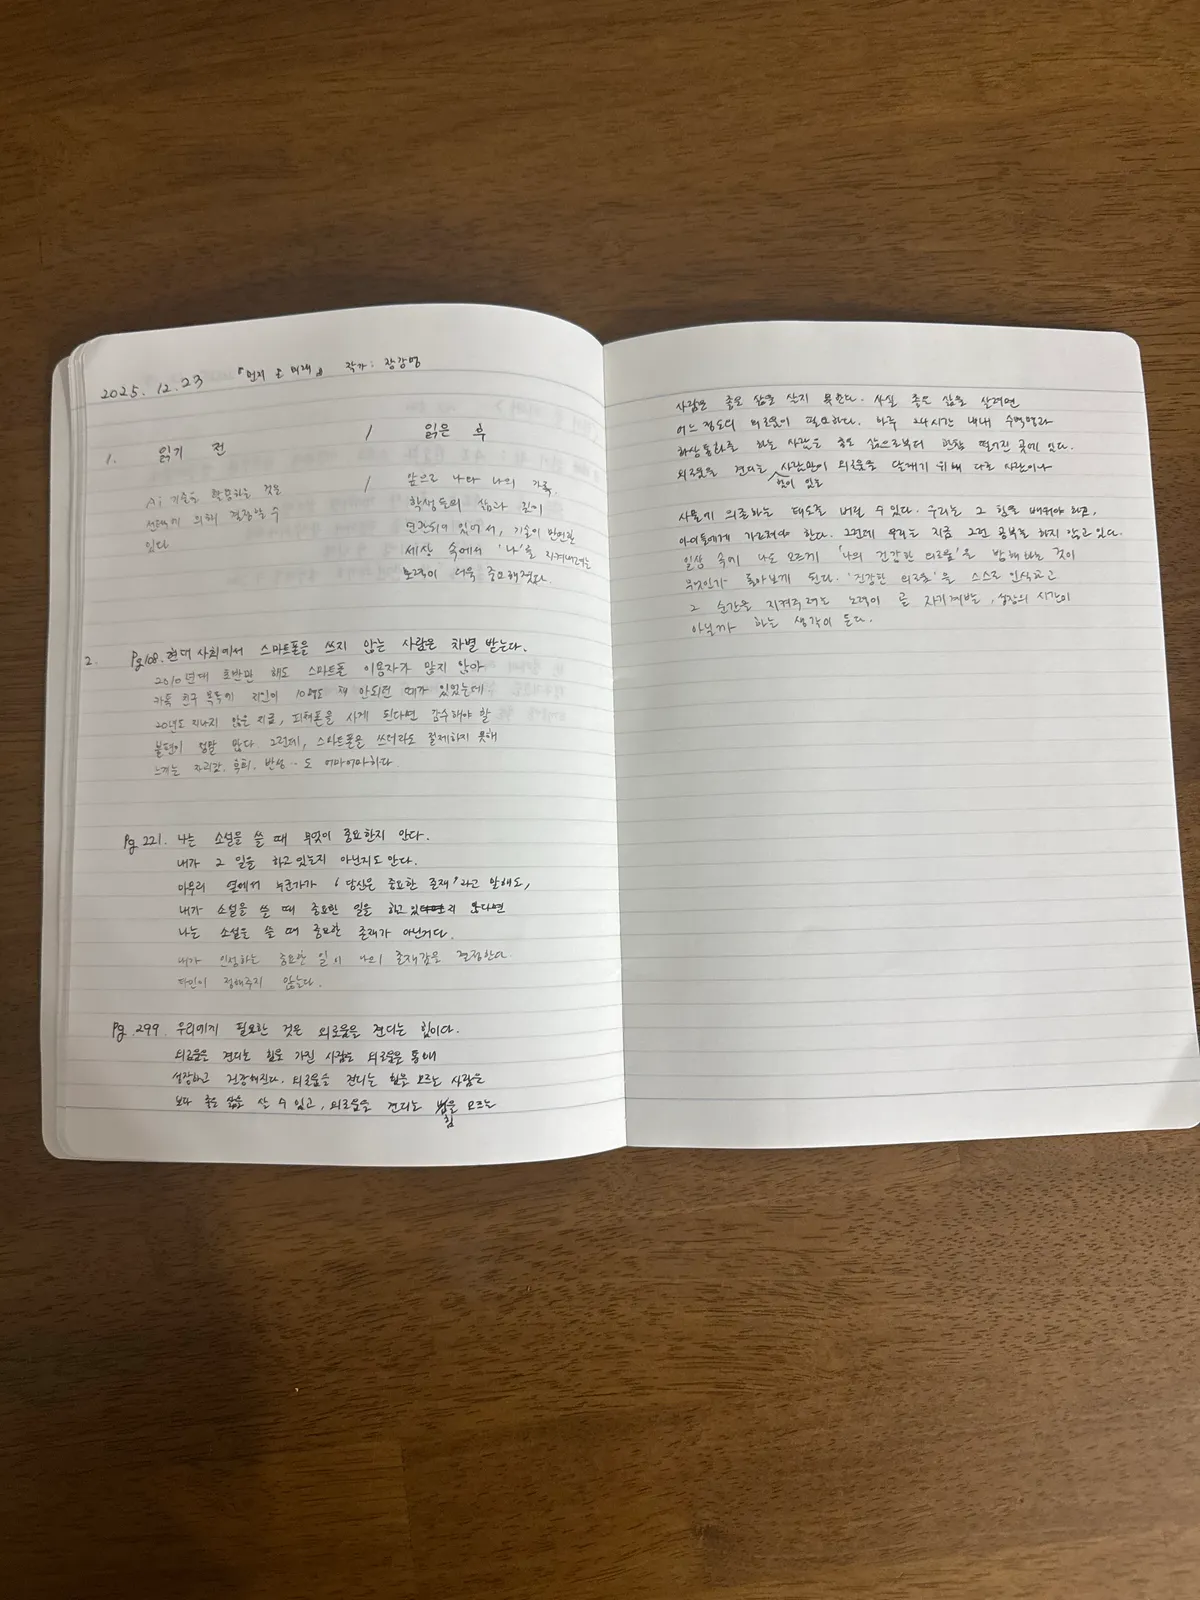 2025. 12. 23 『먼저 온 미래』 작가: 장강명
1. 읽기 전 / 읽은 후
Ai 기술을 활용하는 것은
선택에 의해 결정할 수
있다
/ 앞으로 나와 나의 가족,
학생들의 삶과 깊이
연관되어 있어서, 기술이 만연한
세상 속에서 '나'를 지켜내려는
노력이 더욱 중요해졌다.
2. Pg108. 현대 사회에서 스마트폰을 쓰지 않는 사람은 차별 받는다.
2010년대 초반만 해도 스마트폰 이용자가 많지 않아
카톡 친구 목록에 지인이 10명도 채 안되던 때가 있었는데
20년도 지나지 않은 지금, 피쳐폰을 사게 된다면 감수해야 할
불편이 정말 많다. 그런데, 스마트폰을 쓰더라도 절제하지 못해
느끼는 자괴감, 후회, 반성… 도 어마어마하다.
Pg 221. 나는 소설을 쓸 때 무엇이 중요한지 안다.
내가 그 일을 하고 있는지 아닌지도 안다.
아무리 옆에서 누군가가 '당신은 중요한 존재'라고 말해도,
내가 소설을 쓸 때 중요한 일을 하고 있지 않다면
나는 소설을 쓸 때 중요한 존재가 아닌거다.
내가 인정하는 중요한 일이 나의 존재감을 결정한다
타인이 정해주지 않는다.
Pg. 299. 우리에게 필요한 것은 외로움을 견디는 힘이다.
외로움을 견디는 힘을 가진 사람은 외로움을 통해
성장하고 건강해진다. 외로움을 견디는 힘을 모르는 사람은
보다 좋은 삶을 살 수 있고, 외로움을 견디는 법을 모르는
힘
사람은 좋은 삶을 살지 못한다. 사실 좋은 삶을 살려면
어느 정도의 외로움이 필요하다. 하루 24시간 내내 수억명과
화상통화를 하는 사람은 좋은 삶으로부터 관참 떨어진 곳에 있다.
외로움을 견디는 사람만이 외로움을 달래기 위해 다른 사람이나
힘이 있는
사물에 의존하는 태도를 버릴 수 있다. 우리는 그 힘을 배워야 하고,
아이들에게 가르쳐야 한다. 그런데 우리는 지금 그런 공부를 하지 않고 있다.
일상 속에 나도 모르게 '나의 건강한 외로움'을 방해하는 것이
무엇인가 돌아보게 된다. '건강한 외로움'을 스스로 인식하고
그 순간을 지켜주려는 노력이 곧 자기계발, 성장의 시간이
아닐까 하는 생각이 든다.